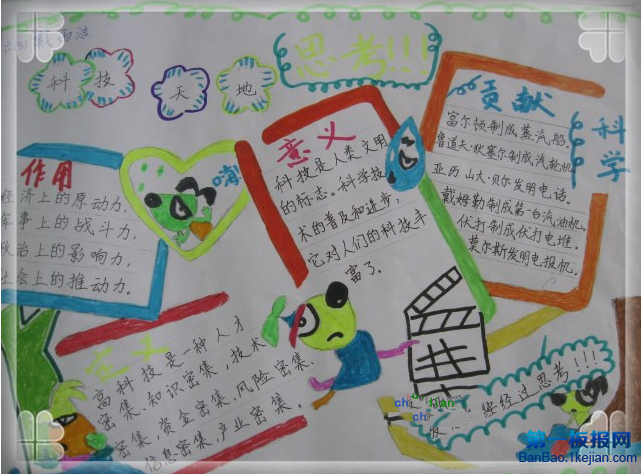 科技天地
思考!!!
作用
经济上的原动力,
军事上的战斗力,
政治上的影响力,
社会上的推动力.
嗨
意义
科技是人类文明
的标志。科学技
术的普及和进步,
它对人们的科技手
富了.
贡献
富尔顿制成蒸汽船.
鲁道夫·狄塞尔制成汽轮机
亚历山大·贝尔发明电话.
戴姆勒制成第一台汽油机.
伏打制成伏打电堆.
莫尔斯发明电报机.
科学
定义
高科技是一种人才
密集、知识密集、技术
密集、资金密集、风险密集、
信息密集、产业密集。
经过思考!!!
第一板报网
BanBao.1kejian.com